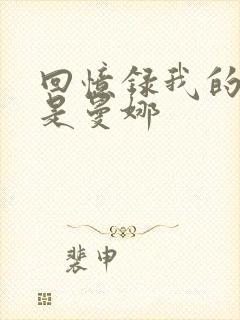 回憶録我的
是曼娜
裴申